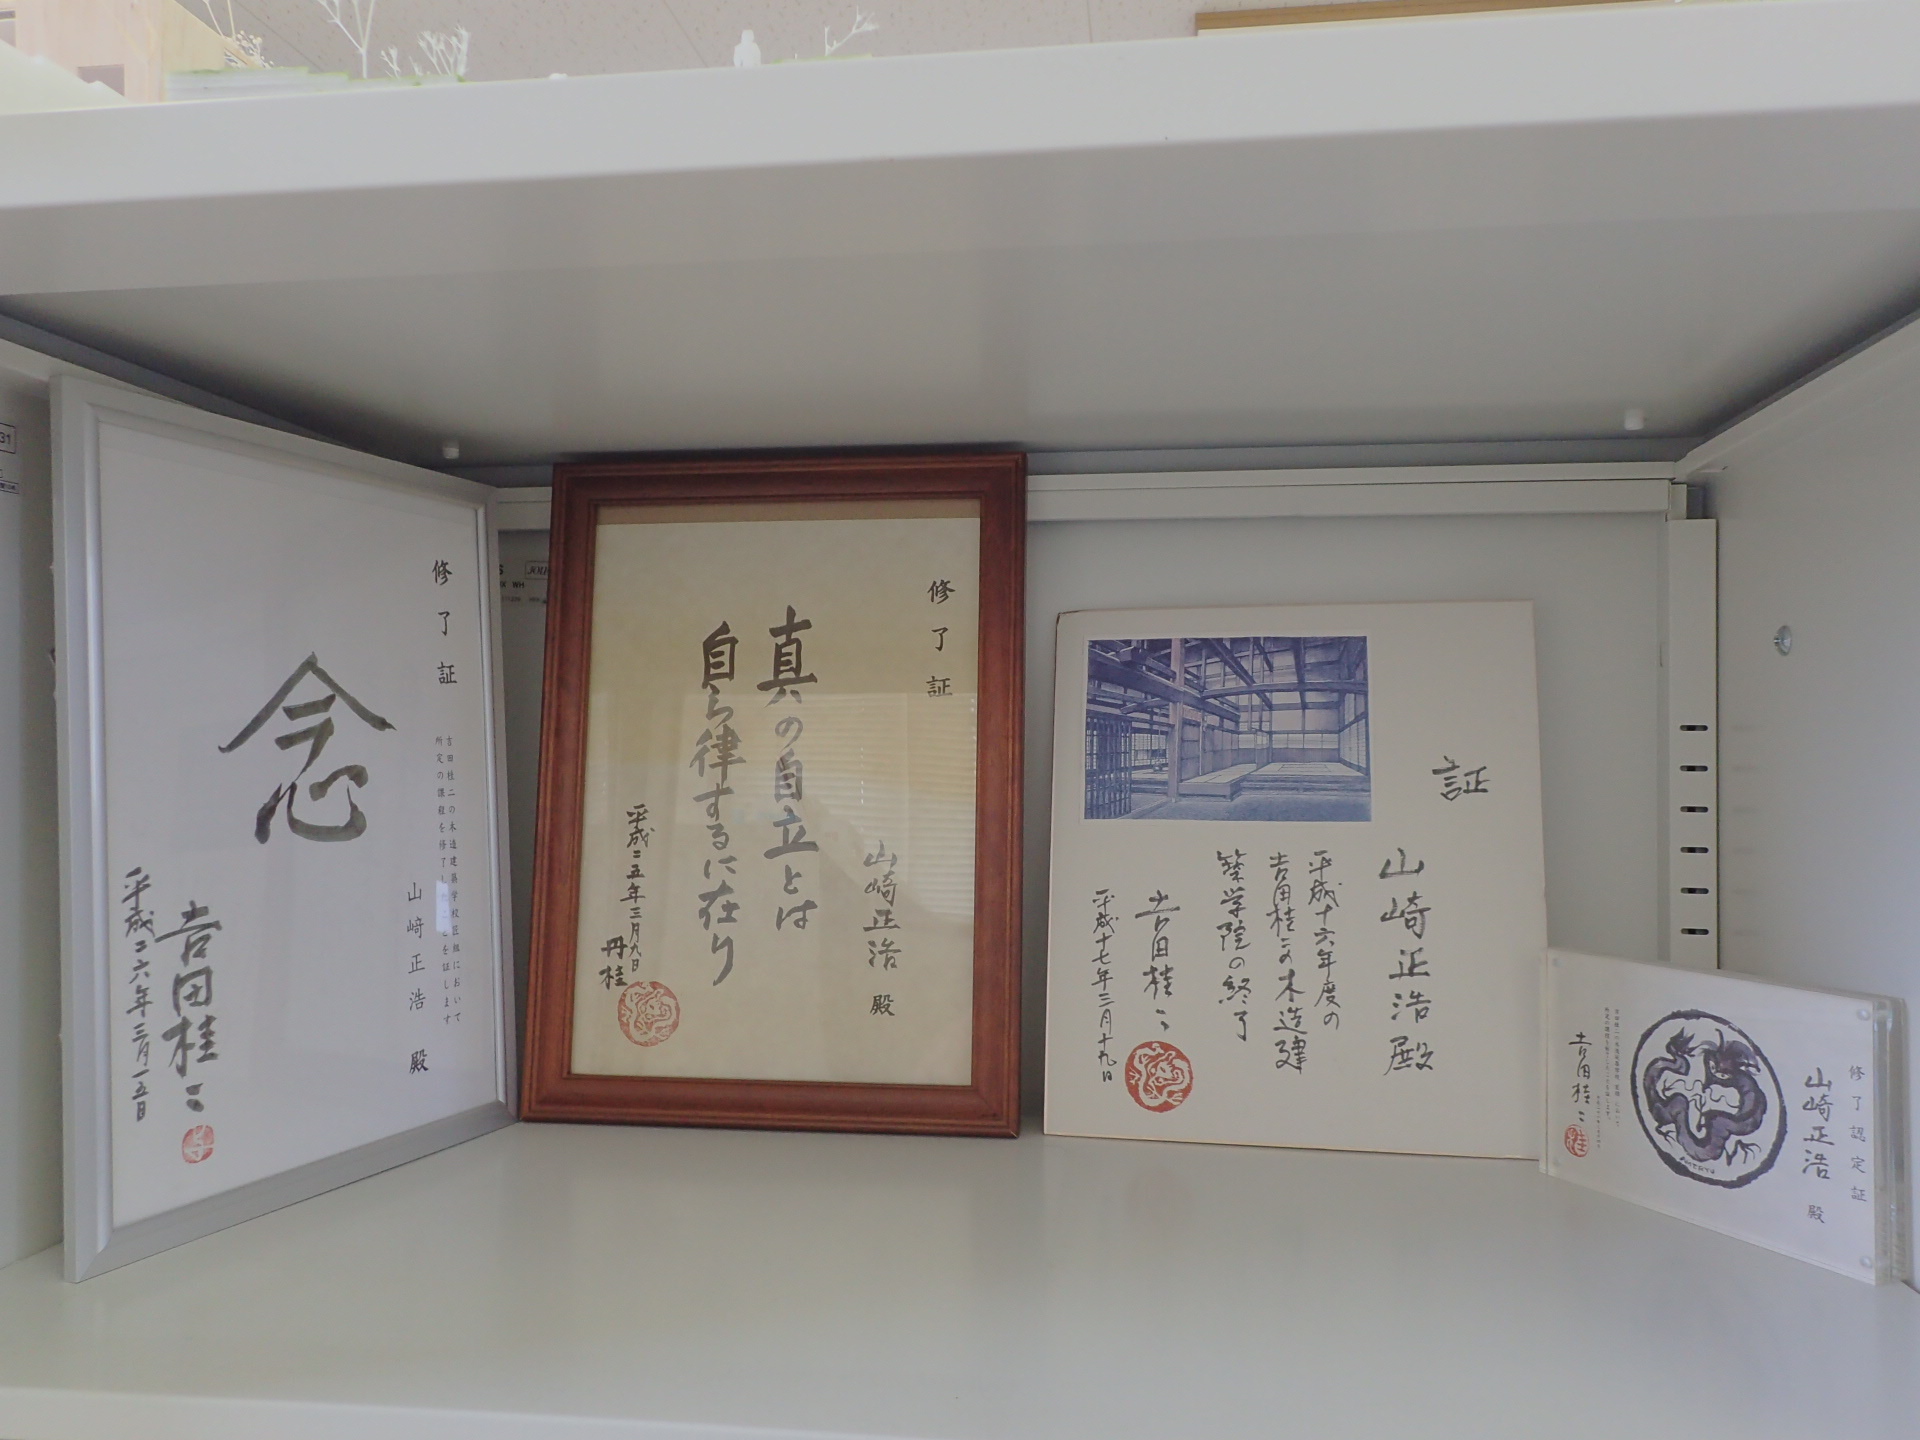 修了証
吉田桂二の木造建築学校匠組において
所定の課程を修了したことを証します
山﨑正浩 殿
念
吉田桂二
平成二六年三月一五日
修了証
山﨑正治 殿
真の自立とは
自ら律するに在り
平成二五年三月九日
丹桂
証
山﨑正浩殿
平成十六年度の
吉田桂二の木造建
築学院の終了
吉田桂二
平成十七年三月十九日
修了認定証
山﨑正浩 殿
吉田桂二
31
JOIF
WH